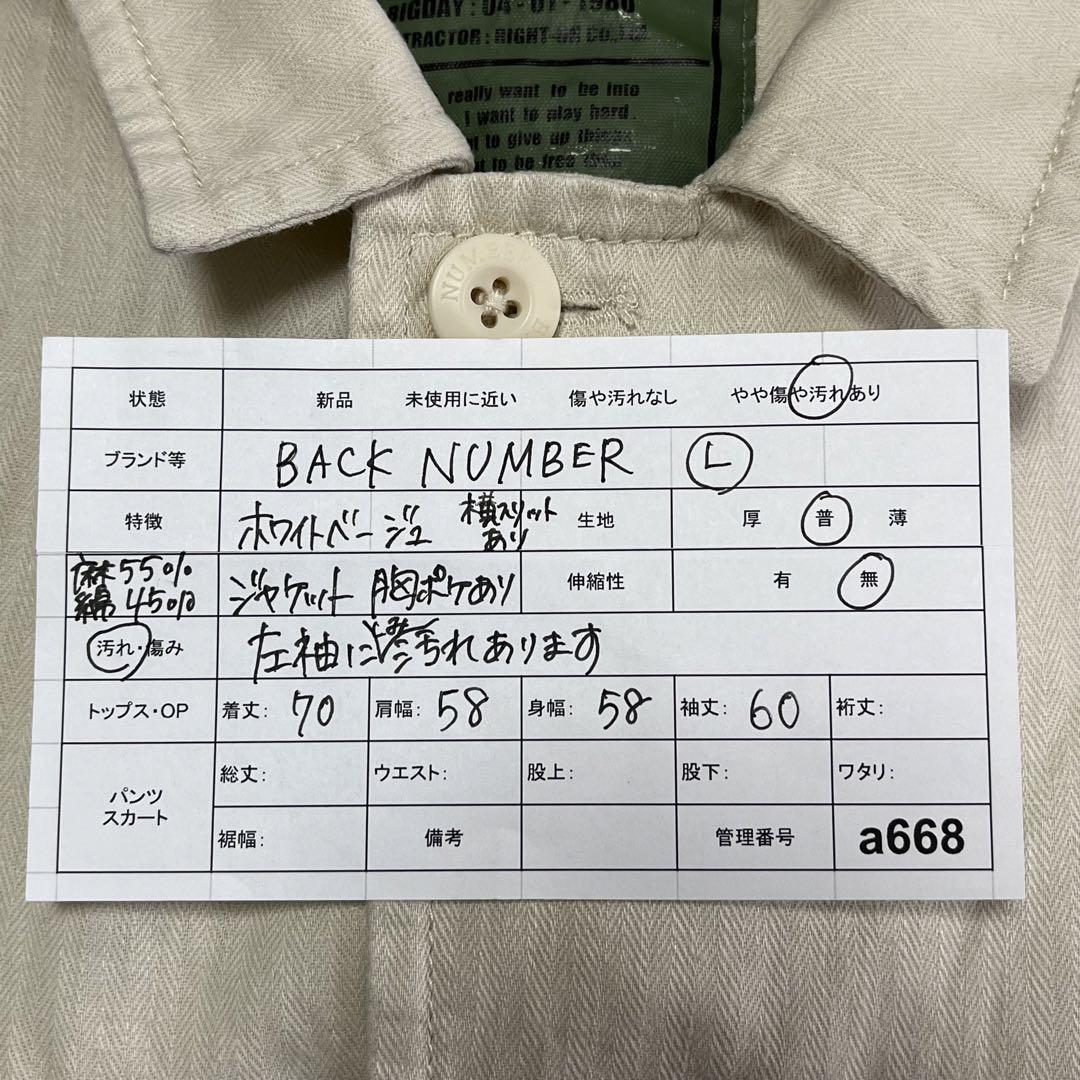 BIGDAY : 04-01-1980
TRACTOR : RIGHT-ON CO.,LTD.
really want to be into
I want to play hard.
to give up things
to be free than
NUMBER
状態 新品 未使用に近い 傷や汚れなし やや傷や汚れあり
ブランド等 BACK NUMBER L
特徴 ホワイトベージュ 横スリットあり 生地 厚 普 薄
麻55% 綿45% ジャケット 胸ポケあり 伸縮性 有 無
汚れ・傷み 左袖に汚れあります
トップス・OP 着丈: 70 肩幅: 58 身幅: 58 袖丈: 60 裄丈:
パンツ スカート 総丈: ウエスト: 股上: 股下: ワタリ:
裾幅: 備考 管理番号 a668